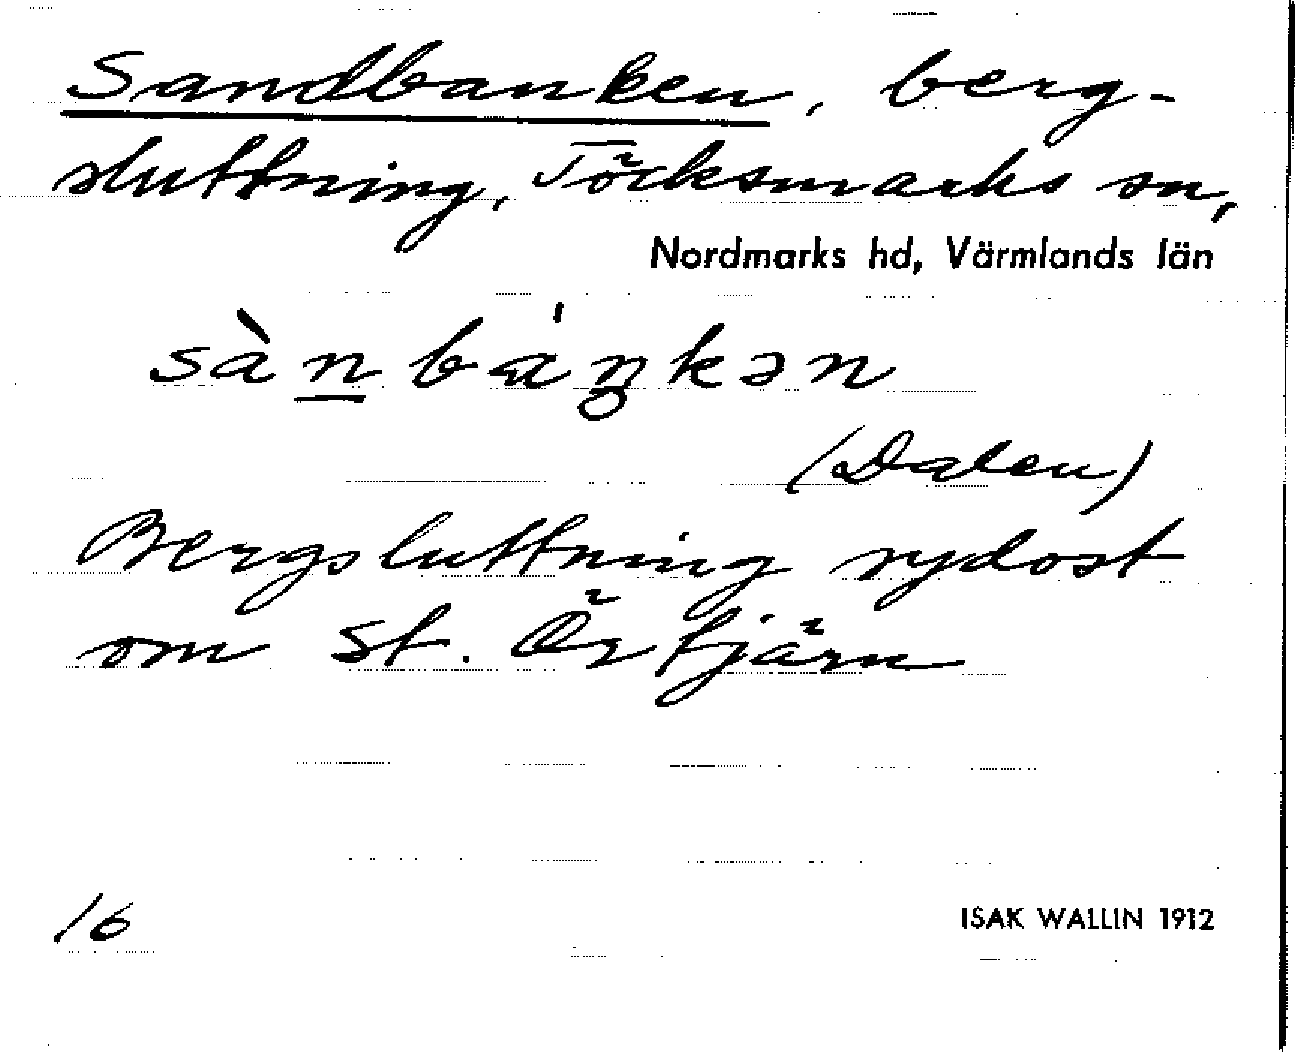 Sandbanken, berg-
sluttning, Töcksmarks sn,
Nordmarks hd, Värmlands län
sàn̲bá̀ŋkən
(Dalen)
Bergsluttning sydost
om St. Örtjärn
16
ISAK WALLIN 1912